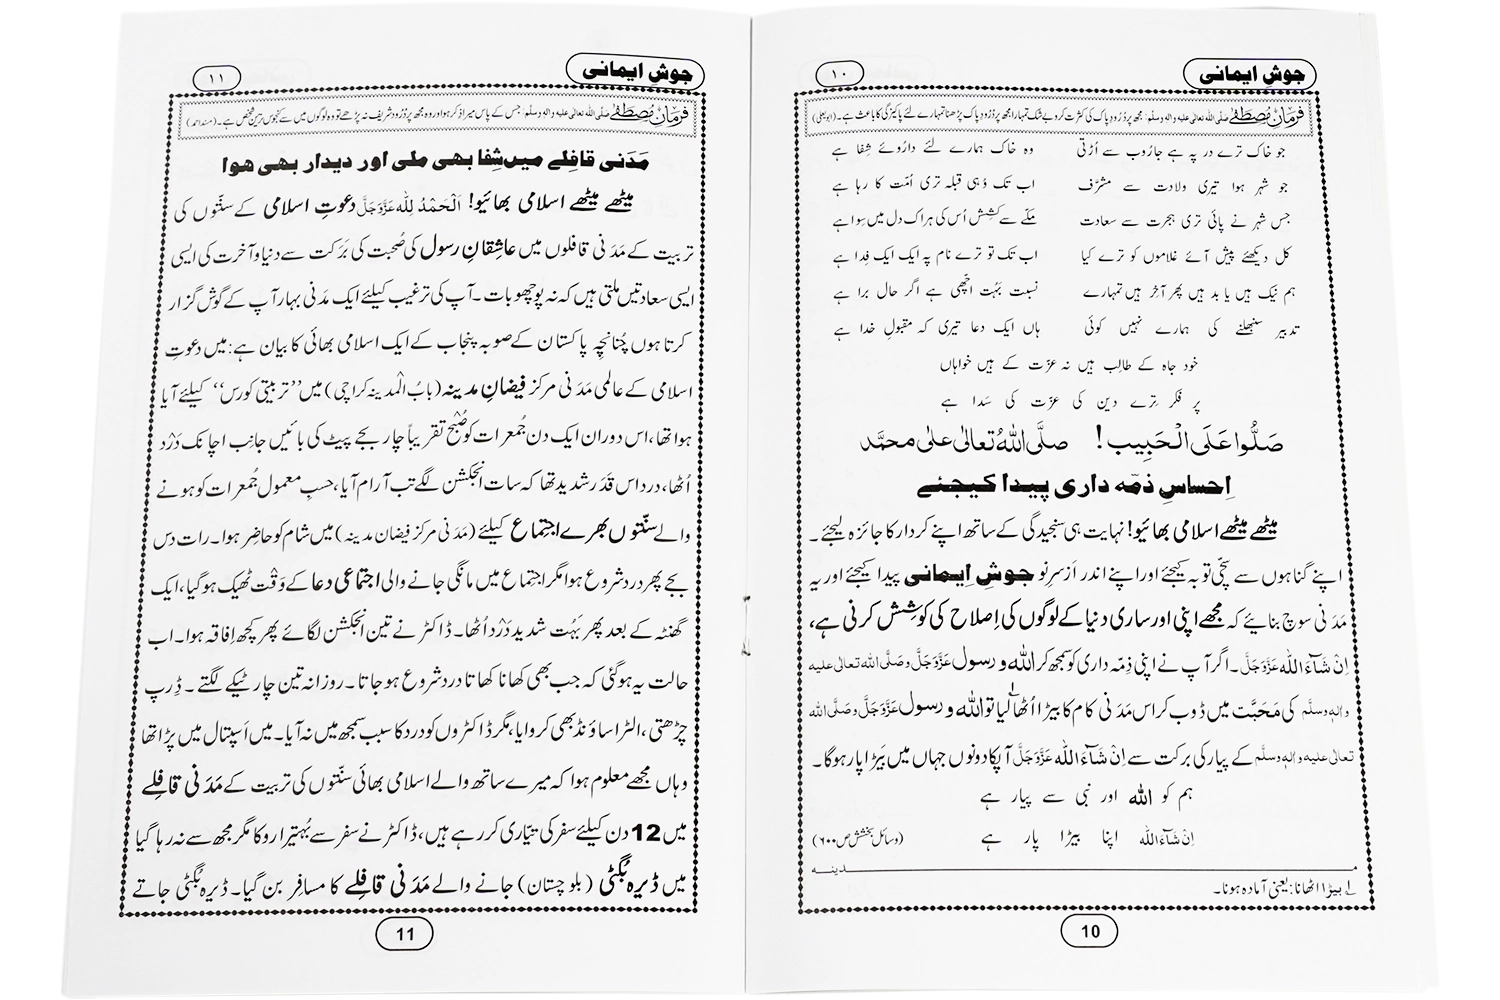 جوشِ ایمانی
۱۰
فرمانِ مصطفٰے صلی اللہ تعالیٰ علیہ والہ وسلم: مجھ پر دُرُودِ پاک کی کثرت کرو بے شک تمہارا مجھ پر دُرُودِ پاک پڑھنا تمہارے لئے پاکیزگی کا باعث ہے۔ (ابویعلی)
جو خاک ترے در پہ ہے جارُوب سے اُڑتی وہ خاک ہمارے لئے دارُوئے شِفا ہے
جو شہر ہوا تیری وِلادت سے مشرَّف اب تک وُہی قبلہ تری اُمّت کا رہا ہے
جس شہر نے پائی تری ہجرت سے سعادت مکّے سے کَشِش اُس کی ہر اک دل میں سِوا ہے
کل دیکھئے پیش آئے غلاموں کو ترے کیا اب تک تو ترے نام پہ ایک ایک فِدا ہے
ہم نیک ہیں یا بد ہیں پھر آخِر ہیں تمہارے نسبت بَہُت اچّھی ہے اگر حال بُرا ہے
تدبیر سنبھلنے کی ہمارے نہیں کوئی ہاں ایک دعا تیری کہ مقبولِ خدا ہے
خود جاہ کے طالِب ہیں نہ عزّت کے ہیں خواہاں
پر فکر تِرے دین کی عزّت کی سَدا ہے
صَلُّوا عَلَی الْحَبِیب! صلَّی اللّٰہُ تعالٰی علٰی محمَّد
اِحساسِ ذِمّہ داری پیدا کیجئے
میٹھے میٹھے اسلامی بھائیو! نہایت ہی سنجیدگی کے ساتھ اپنے کردار کا جائزہ لیجئے۔
اپنے گناہوں سے سچّی توبہ کیجئے اور اپنے اندر اَزسرِ نو جوشِ اِیمانی پیدا کیجئے اور یہ
مَدَنی سوچ بنائیے کہ مجھے اپنی اور ساری دنیا کے لوگوں کی اِصلاح کی کوشِش کرنی ہے،
اِنْ شَآءَ اللّٰہ عَزَّوَجَلَّ۔ اگر آپ نے اپنی ذِمّہ داری کو سمجھ کر اللّٰہ و رسول عَزَّوَجَلَّ وَصَلَّی اللہ تعالٰی علیہ
والہٖ وسلَّم کی مَحَبَّت میں ڈوب کر اس مَدَنی کام کا بیڑا اُٹھا لیا تو اللّٰہ و رسول عَزَّوَجَلَّ وَصلَّی اللہ
تعالٰی علیہ والہٖ وسلَّم کے پیار کی برکت سے اِنْ شَآءَ اللّٰہ عَزَّوَجَلَّ آپکا دونوں جہاں میں بَیڑا پار ہوگا۔
ہم کو اللّٰہ اور نبی سے پیار ہے
اِنْ شَآءَ اللّٰہ اپنا بیڑا پار ہے (وسائلِ بخشش ص۶۰۰)
مدینہ
۱ بیڑا اٹھانا: یعنی آمادہ ہونا۔
10
جوشِ ایمانی
۱۱
فرمانِ مصطفٰے صلی اللہ تعالیٰ علیہ والہ وسلم: جس کے پاس میرا ذکر ہو اور وہ مجھ پر دُرُود شریف نہ پڑھے تو وہ لوگوں میں سے کنجوس ترین شخص ہے۔ (مسند احمد)
مَدَنی قافِلے میں شِفا بھی ملی اور دیدار بھی ہوا
میٹھے میٹھے اسلامی بھائیو! اَلْحَمْدُ لِلّٰہ عَزَّوَجَلَّ دعوتِ اسلامی کے سنّتوں کی
تربیت کے مَدَنی قافلوں میں عاشقانِ رسول کی صُحبت کی بَرَکت سے دنیا و آخرت کی ایسی
ایسی سعادتیں ملتی ہیں کہ نہ پوچھو بات۔ آپ کی ترغیب کیلئے ایک مَدَنی بہار آپ کے گوش گزار
کرتا ہوں چُنانچِہ پاکستان کے صوبہ پنجاب کے ایک اسلامی بھائی کا بیان ہے: میں دعوتِ
اسلامی کے عالمی مَدَنی مرکز فیضانِ مدینہ (بابُ المدینہ کراچی) میں ”تربیّتی کورس“ کیلئے آیا
ہوا تھا، اس دوران ایک دن جُمعرات کو صُبْح تقریباً چار بجے پیٹ کی بائیں جانِب اچانک دَرْد
اُٹھا، درد اس قَدَر شدید تھا کہ سات انجکشن لگے تب آرام آیا، حسبِ معمول جُمعرات کو ہونے
والے سنّتوں بھرے اجتِماع کیلئے (مَدَنی مرکز فیضانِ مدینہ) میں شام کو حاضِر ہوا۔ رات دس
بجے پھر درد شروع ہوا مگر اجتِماع میں مانگی جانے والی اجتِماعی دعا کے وَقْت ٹھیک ہوگیا، ایک
گھنٹہ کے بعد پھر بَہُت شدید دَرْد اُٹھا۔ ڈاکٹر نے تین انجکشن لگائے پھر کچھ اِفاقہ ہوا۔ اب
حالت یہ ہوگئی کہ جب بھی کھانا کھاتا درد شروع ہو جاتا۔ روزانہ تین چار ٹیکے لگتے۔ ڈِرِپ
چڑھتی، الٹرا ساؤنڈ بھی کروایا، مگر ڈاکٹروں کو درد کا سبب سمجھ میں نہ آیا۔ میں اَسپتال میں پڑا تھا
وہاں مجھے معلوم ہوا کہ میرے ساتھ والے اسلامی بھائی سنّتوں کی تربیت کے مَدَنی قافِلے
میں 12 دن کیلئے سفر کی تیّاری کر رہے ہیں، ڈاکٹر نے سفر سے بُہتیرا روکا مگر مجھ سے نہ رہا گیا
میں ڈیرہ بُگٹی (بلوچستان) جانے والے مَدَنی قافِلے کا مسافر بن گیا۔ ڈیرہ بُگٹی جاتے
11